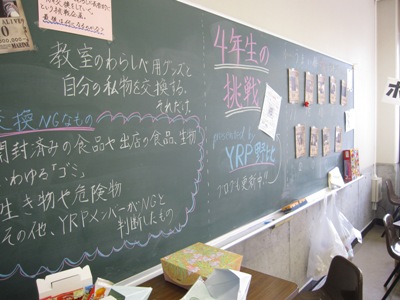 教室のわらしべ用グッズと
自分の私物を交換する。
それだけ。
交換NGなもの
開封済みの食品や出店の食品、生物
いわゆる「ゴミ」
生き物や危険物
その他、YRPメンバーがNGと
判断したもの
4年生の
挑戦
produced by
YRP野比
ブログも更新中!!